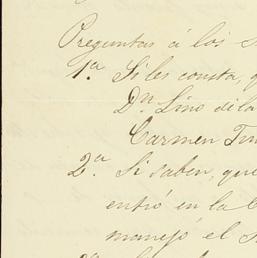 Preguntas á los
1ª. Si les consta, q
Dn. Lino de la
Carmen
2ª. Si saben, que
entró en la C
manejó el